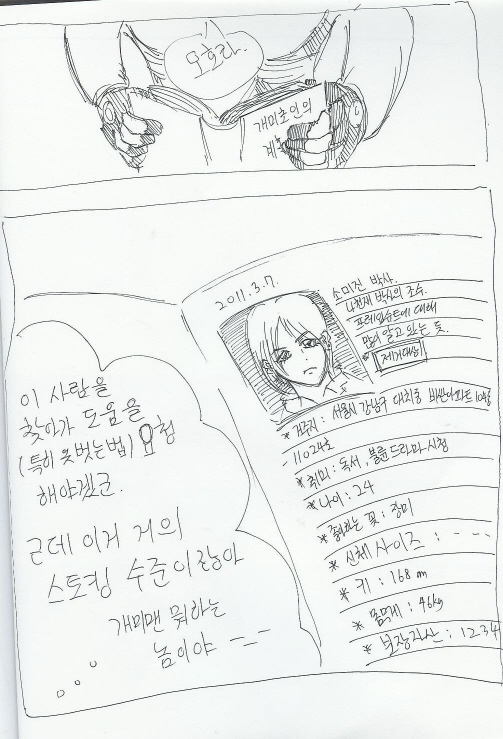 오호라..
개미호인의
2011.3.7.
소미진 박사.
나천재 박사의 조수.
프레임슈트에 대해
많이 알고 있는 듯.
* 제거대상!
* 거주지 : 서울시 강남구 대치동 비싼아파트 104동
- 11024호
* 취미 : 독서, 불륜드라마 시청
* 나이 : 24
* 좋아하는 꽃 : 장미
* 신체 사이즈 : - - -
* 키 : 168 m
* 몸무게 : 46kg
* 보장자산 : 1234
이 사람을
찾아가 도움을
(특히 옷벗는법) 요청
해야겠군.
근데 이거 거의
스토킹 수준이잖아
개미맨 뭐하는
놈이야 -_-